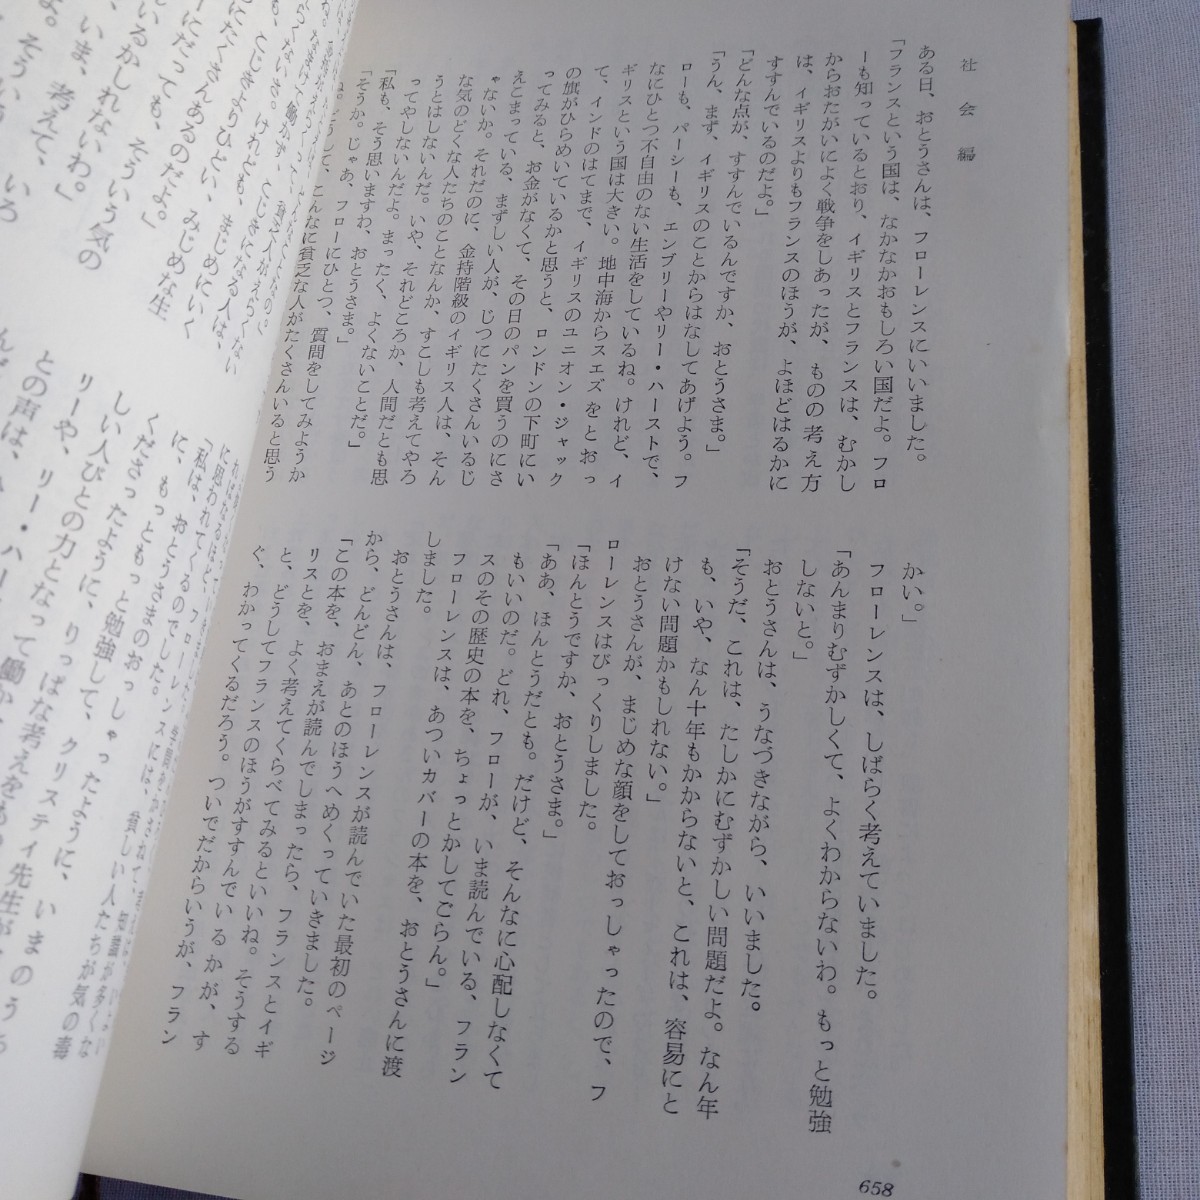 社会編
ある日、おとうさんは、フローレンスにいいました。
「フランスという国は、なかなかおもしろい国だよ。フロ
ーも知っているとおり、イギリスとフランスは、むかし
からおたがいによく戦争をしあったが、ものの考え方
は、イギリスよりもフランスのほうが、よほどはるかに
すすんでいるのだよ。」
「どんな点が、すすんでいるんですか、おとうさま。」
「うん、まず、イギリスのことからはなしてあげよう。フ
ローも、パーシーも、エンブリーやリー・ハーストで、
なにひとつ不自由のない生活をしているね。けれど、イ
ギリスという国は大きい。地中海からスエズをとおっ
て、インドのはてまで、イギリスのユニオン・ジャック
の旗がひらめいているかと思うと、ロンドンの下町にい
ってみると、お金がなくて、その日のパンを買うのにさ
えこまっている、まずしい人が、じつにたくさんいるじ
ゃないか。それだのに、金持階級のイギリス人は、そん
な気のどくな人たちのことなんか、すこしも考えてやろ
うとはしないんだ。いや、それどころか、人間だとも思
ってやしないんだよ。まったく、よくないことだ。」
「私も、そう思いますわ、おとうさま。」
「そうか。じゃあ、フローにひとつ、質問をしてみようか
ね。どうして、こんなに貧乏な人がたくさんいると思う
かい。」
フローレンスは、しばらく考えていました。
「あんまりむずかしくて、よくわからないわ。もっと勉強
しないと。」
おとうさんは、うなづきながら、いいました。
「そうだ、これは、たしかにむずかしい問題だよ。なん年
も、いや、なん十年もかからないと、これは、容易にと
けない問題かもしれない。」
おとうさんが、まじめな顔をしておっしゃったので、フ
ローレンスはびっくりしました。
「ほんとうですか、おとうさま。」
「ああ、ほんとうだとも。だけど、そんなに心配しなくて
もいいのだ。どれ、フローが、いま読んでいる、フラン
スのその歴史の本を、ちょっとかしてごらん。」
フローレンスは、あついカバーの本を、おとうさんに渡
しました。
おとうさんは、フローレンスが読んでいた最初のページ
から、どんどん、あとのほうへめくっていきました。
「この本を、おまえが読んでしまったら、フランスとイギ
リスとを、よく考えてくらべてみるといいね。そうする
と、どうしてフランスのほうがすすんでいるかが、す
ぐ、わかってくるだろう。ついでだからいうが、フラン
658
らくないさ。けれども、まじめにいく
も、こじきよりひどい、みじめな生
にたくさんあるのだよ。」
ーにだっても、そういう気の
いるかしれないわ。」
、いま、考えて、いろ
に思われてくるのでした。
「私は、おとうさまのおっしゃったように、
に、もっともっと勉強して、クリスティ先生が
くださったように、りっぱな考えを
しい人びとの力となって働か
リーや、リー・ハー
との声は、